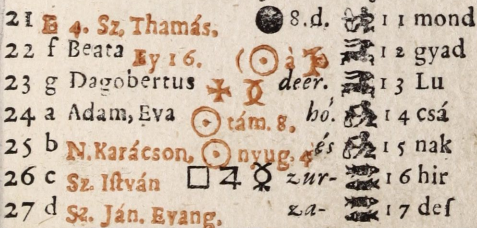 21 E 4. Sz. Thamás. ● 8. d. 11 mond
22 f Beata Ey 16. (☉ à 12 gyad
23 g Dagobertus deer. 13 Lu
24 a Adam, Eva ☉ tám. 8. hó. 14 csá
25 b N. Karácson, ☉ nyug. 4 és 15 nak
26 c Sz. Iſtván □ ♃ ☿ zur- 16 hir
27 d Sz. Ján. Evang. za- 17 deſ